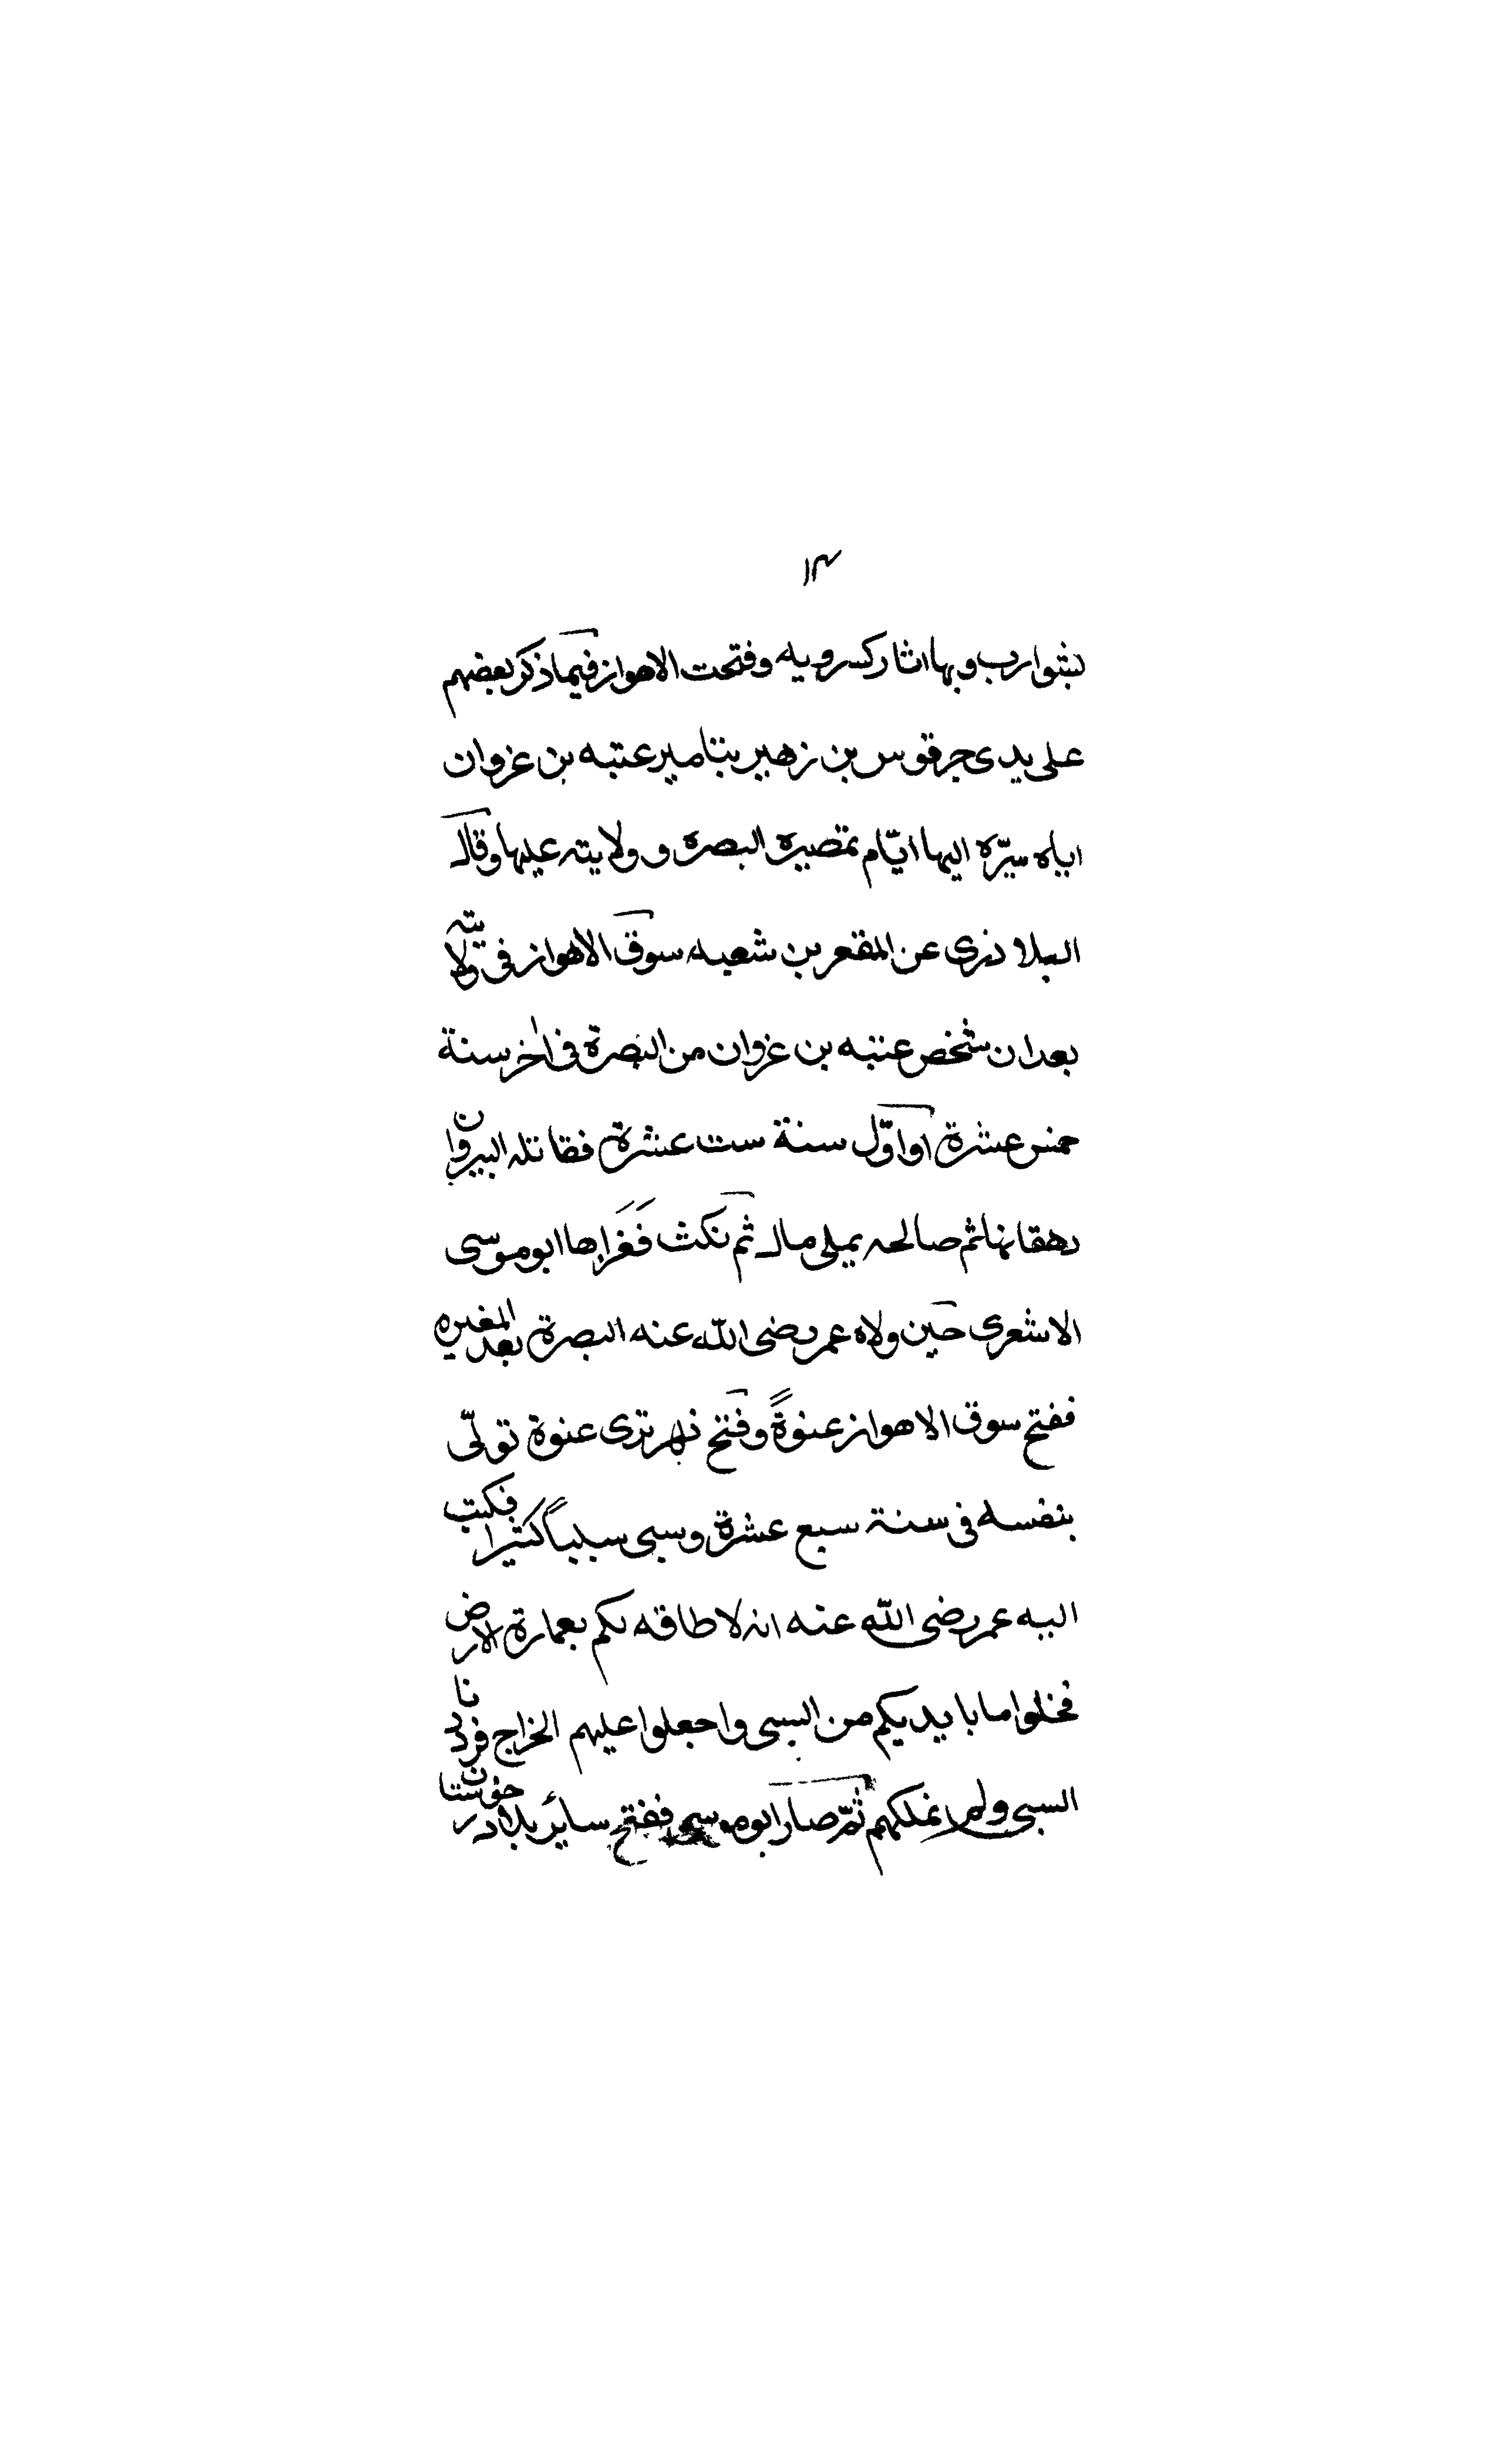 ١٣
بثوارب وبها اثار كسرويه وفتحت الاهواز فيما ذكر بعضهم
على يدى حرقوس بن زهير بتامير عتبه بن غزوان
اياه سيّره اليها ايّام تمصيره البصره و ولايته عليها وقال
البلاذرى عن المقعر بن شعبه سوق الاهواز فى ولايته
بعد ان شخص عتبه بن غزوان من البصرة فى اخر سنة
خمس عشرة او اوّل سنة ست عشرة فقاتله البيروان
دهقانها ثم صالحه على مال ثم نكث فَغَزاها ابو موسى
الاشعرى حين ولاه عمر رضى الله عنه البصرة بعد المغيره
ففتح سوق الاهواز عنوةً وفتح نهر تيرى عنوة تولّى
بنفسه فى سنة سبع عشرة وسبى سبياً كثيرا فكتب
اليه عمر رضى الله عنه انه لا طاقه لكم بعمارة الارض
فخلوا ما بايديكم من السبى واجعلوا عليهم الخراج فرددنا
السبى ولم نملكهم ثمّ صار ابو موسى ففتح ساير بلاد خوزستان